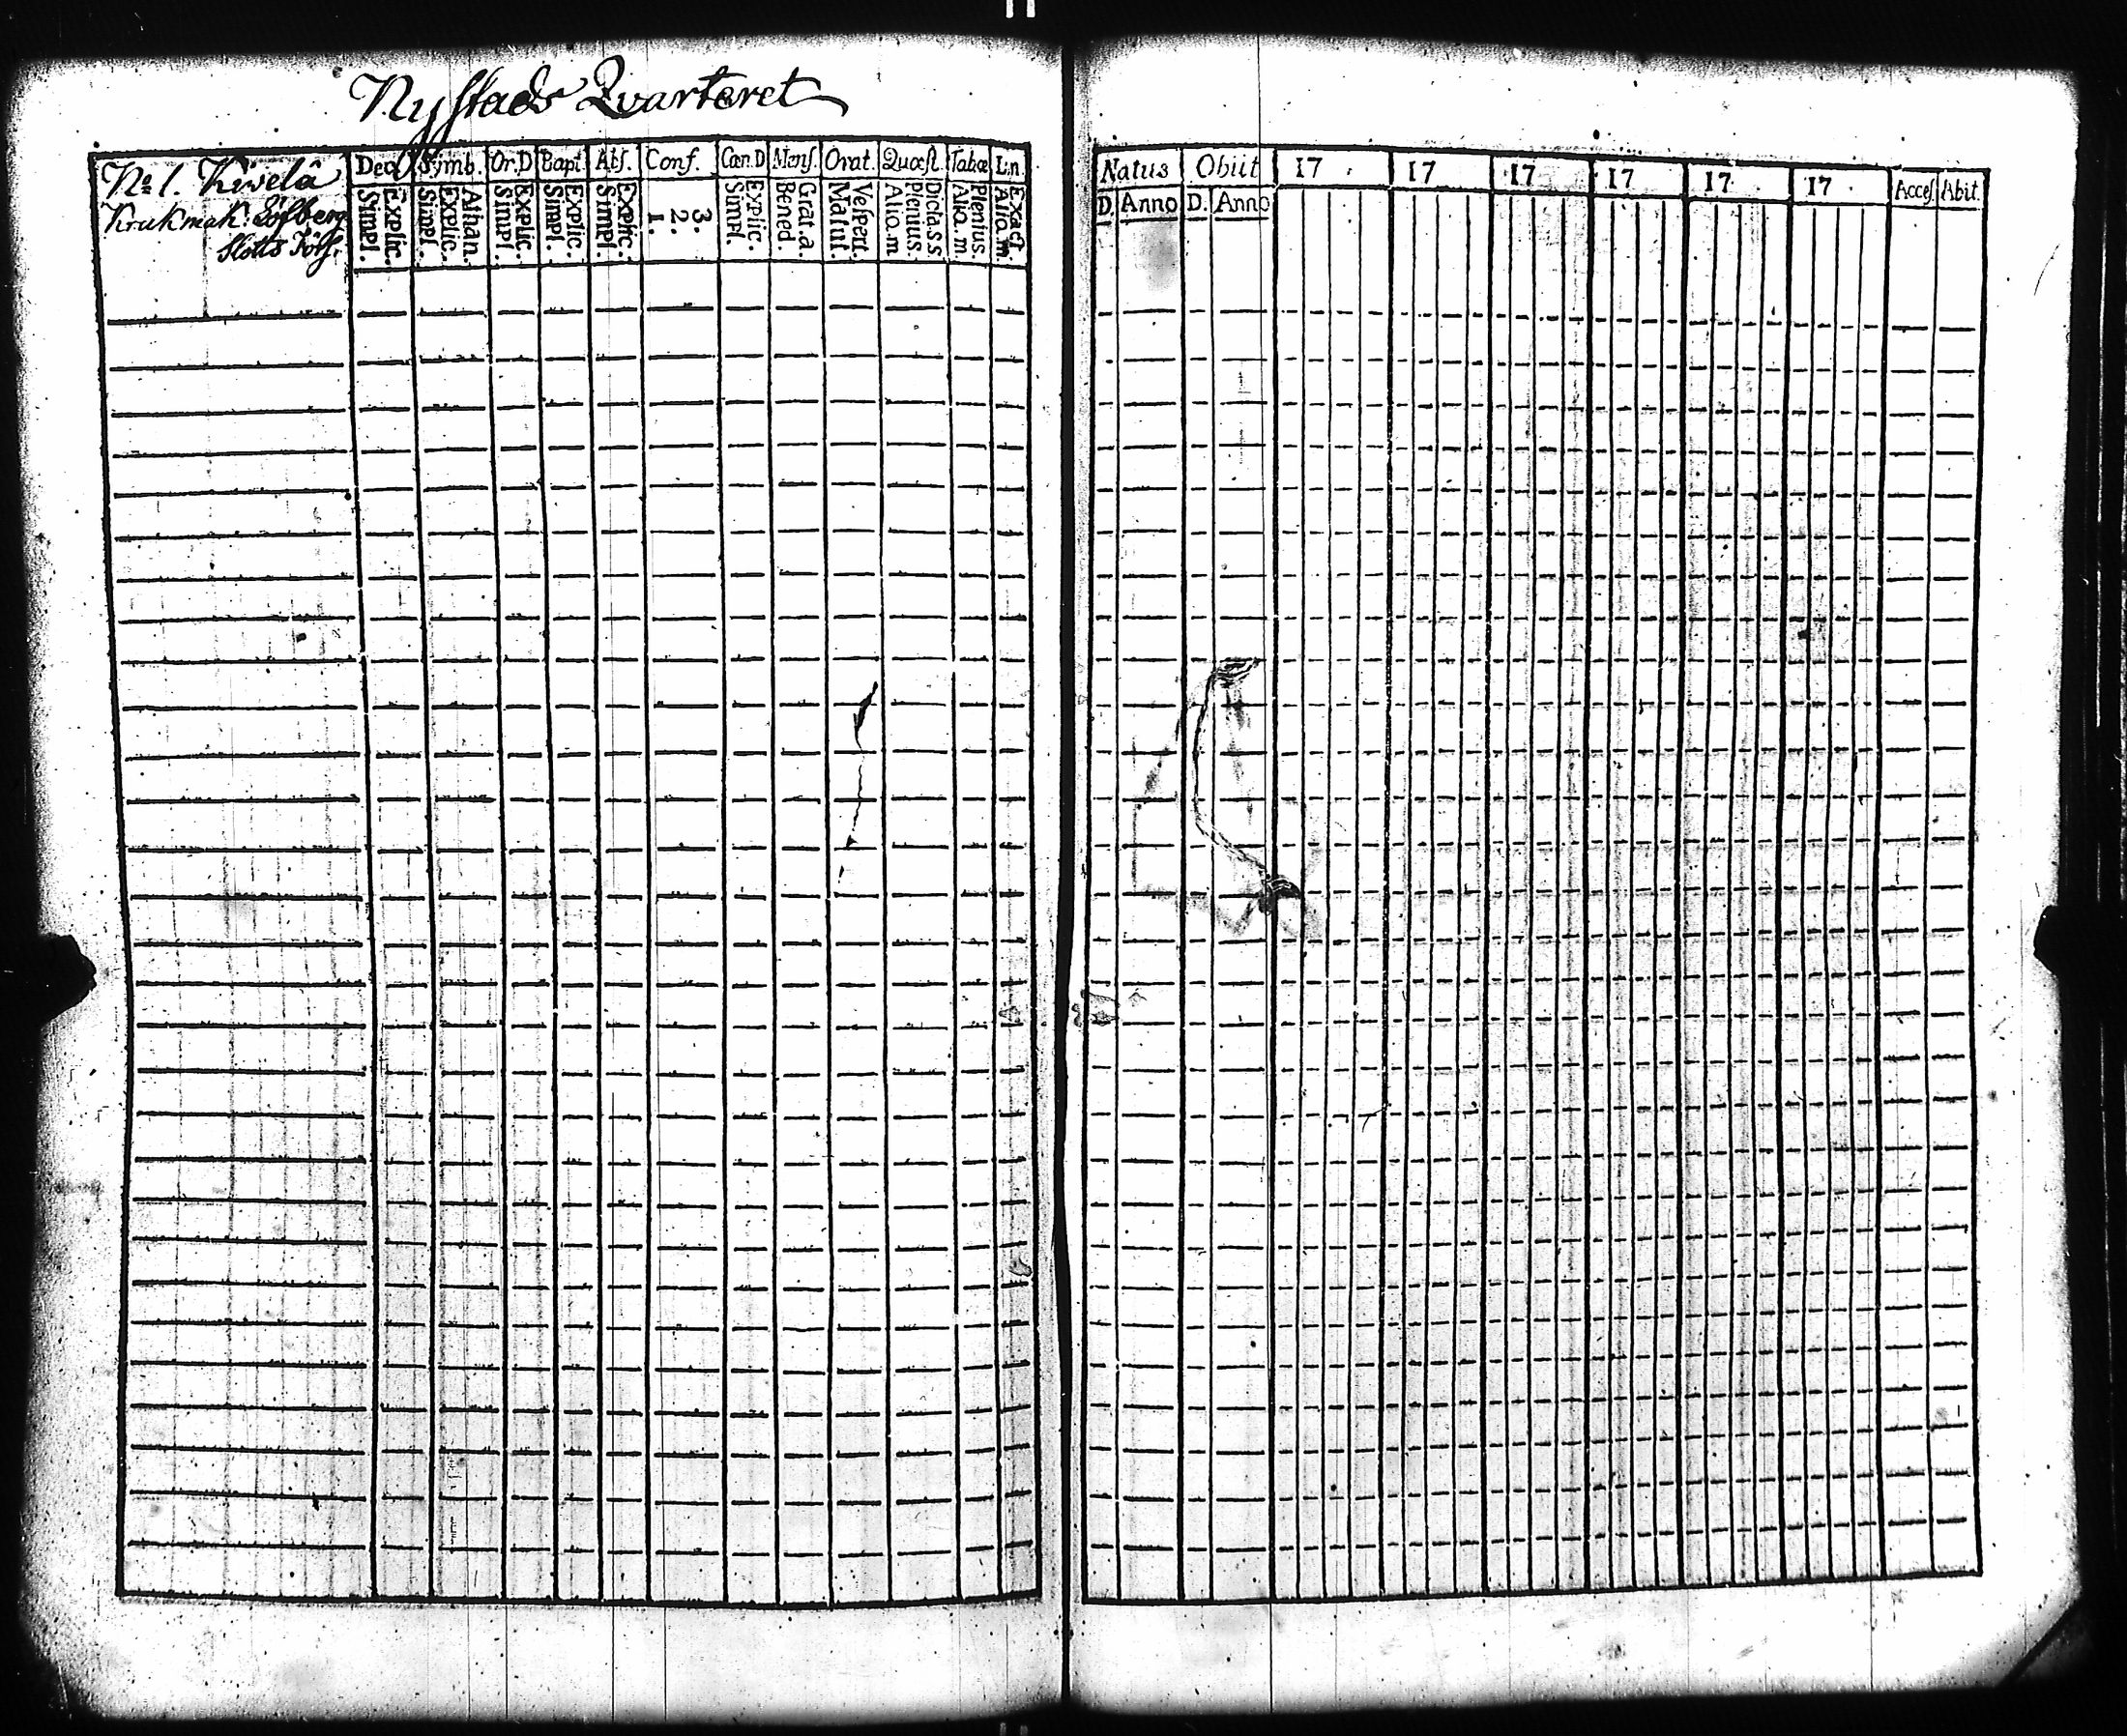 Nystads Qvarteret
No 1. Kiwelâ
Krukmak. Löfberg
Slotts Förs.
Dec. Simb. Or.D Bapt. Abs. Conf. Cœn.D Mens. Orat. Quæst. Tabæ Ln.
Explic. Simpl.
Athan. Explic. Simpl.
Explic. Simpl.
Explic. Simpl.
Explic. Simpl.
3. 2. 1.
Explic. Simpl.
Grat.a. Bened.
Vespert. Matut.
Dicta.s.s Plenius. Alio.m
Plenius. Alio.m
Exact. Alio.m.
Natus Obiit 17 17 17 17 17 17 Acces. Abit.
D. Anno D. Anno